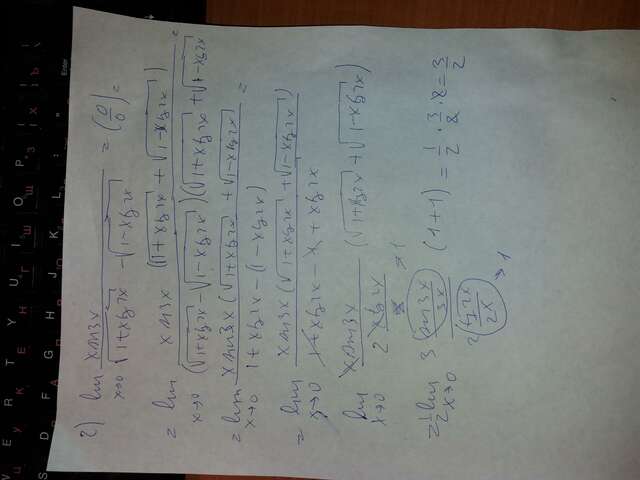 2) lim x→0 x sin3x / (√(1+x tg2x) − √(1−x tg2x)) = (0/0) =
= lim x→0 x sin3x (√(1+x tg2x) + √(1−x tg2x)) / (√(1+x tg2x) − √(1−x tg2x))(√(1+x tg2x) + √(1−x tg2x)) =
= lim x→0 x sin3x (√(1+x tg2x) + √(1−x tg2x)) / 1+x tg2x − (1−x tg2x) =
= lim x→0 x sin3x (√(1+x tg2x) + √(1−x tg2x)) / 1+x tg2x − 1 + x tg2x
lim x→0 x sin3x / 2 x tg2x (√(1+x tg2x) + √(1−x tg2x))
= 1/2 lim x→0 3 (sin3x / 3x) → 1 / 2 (tg2x / 2x) → 1 (1+1) = 1/2 · 3/2 · 2 = 3/2
Enter
W E R T Y U I O P
S D F G H J K L